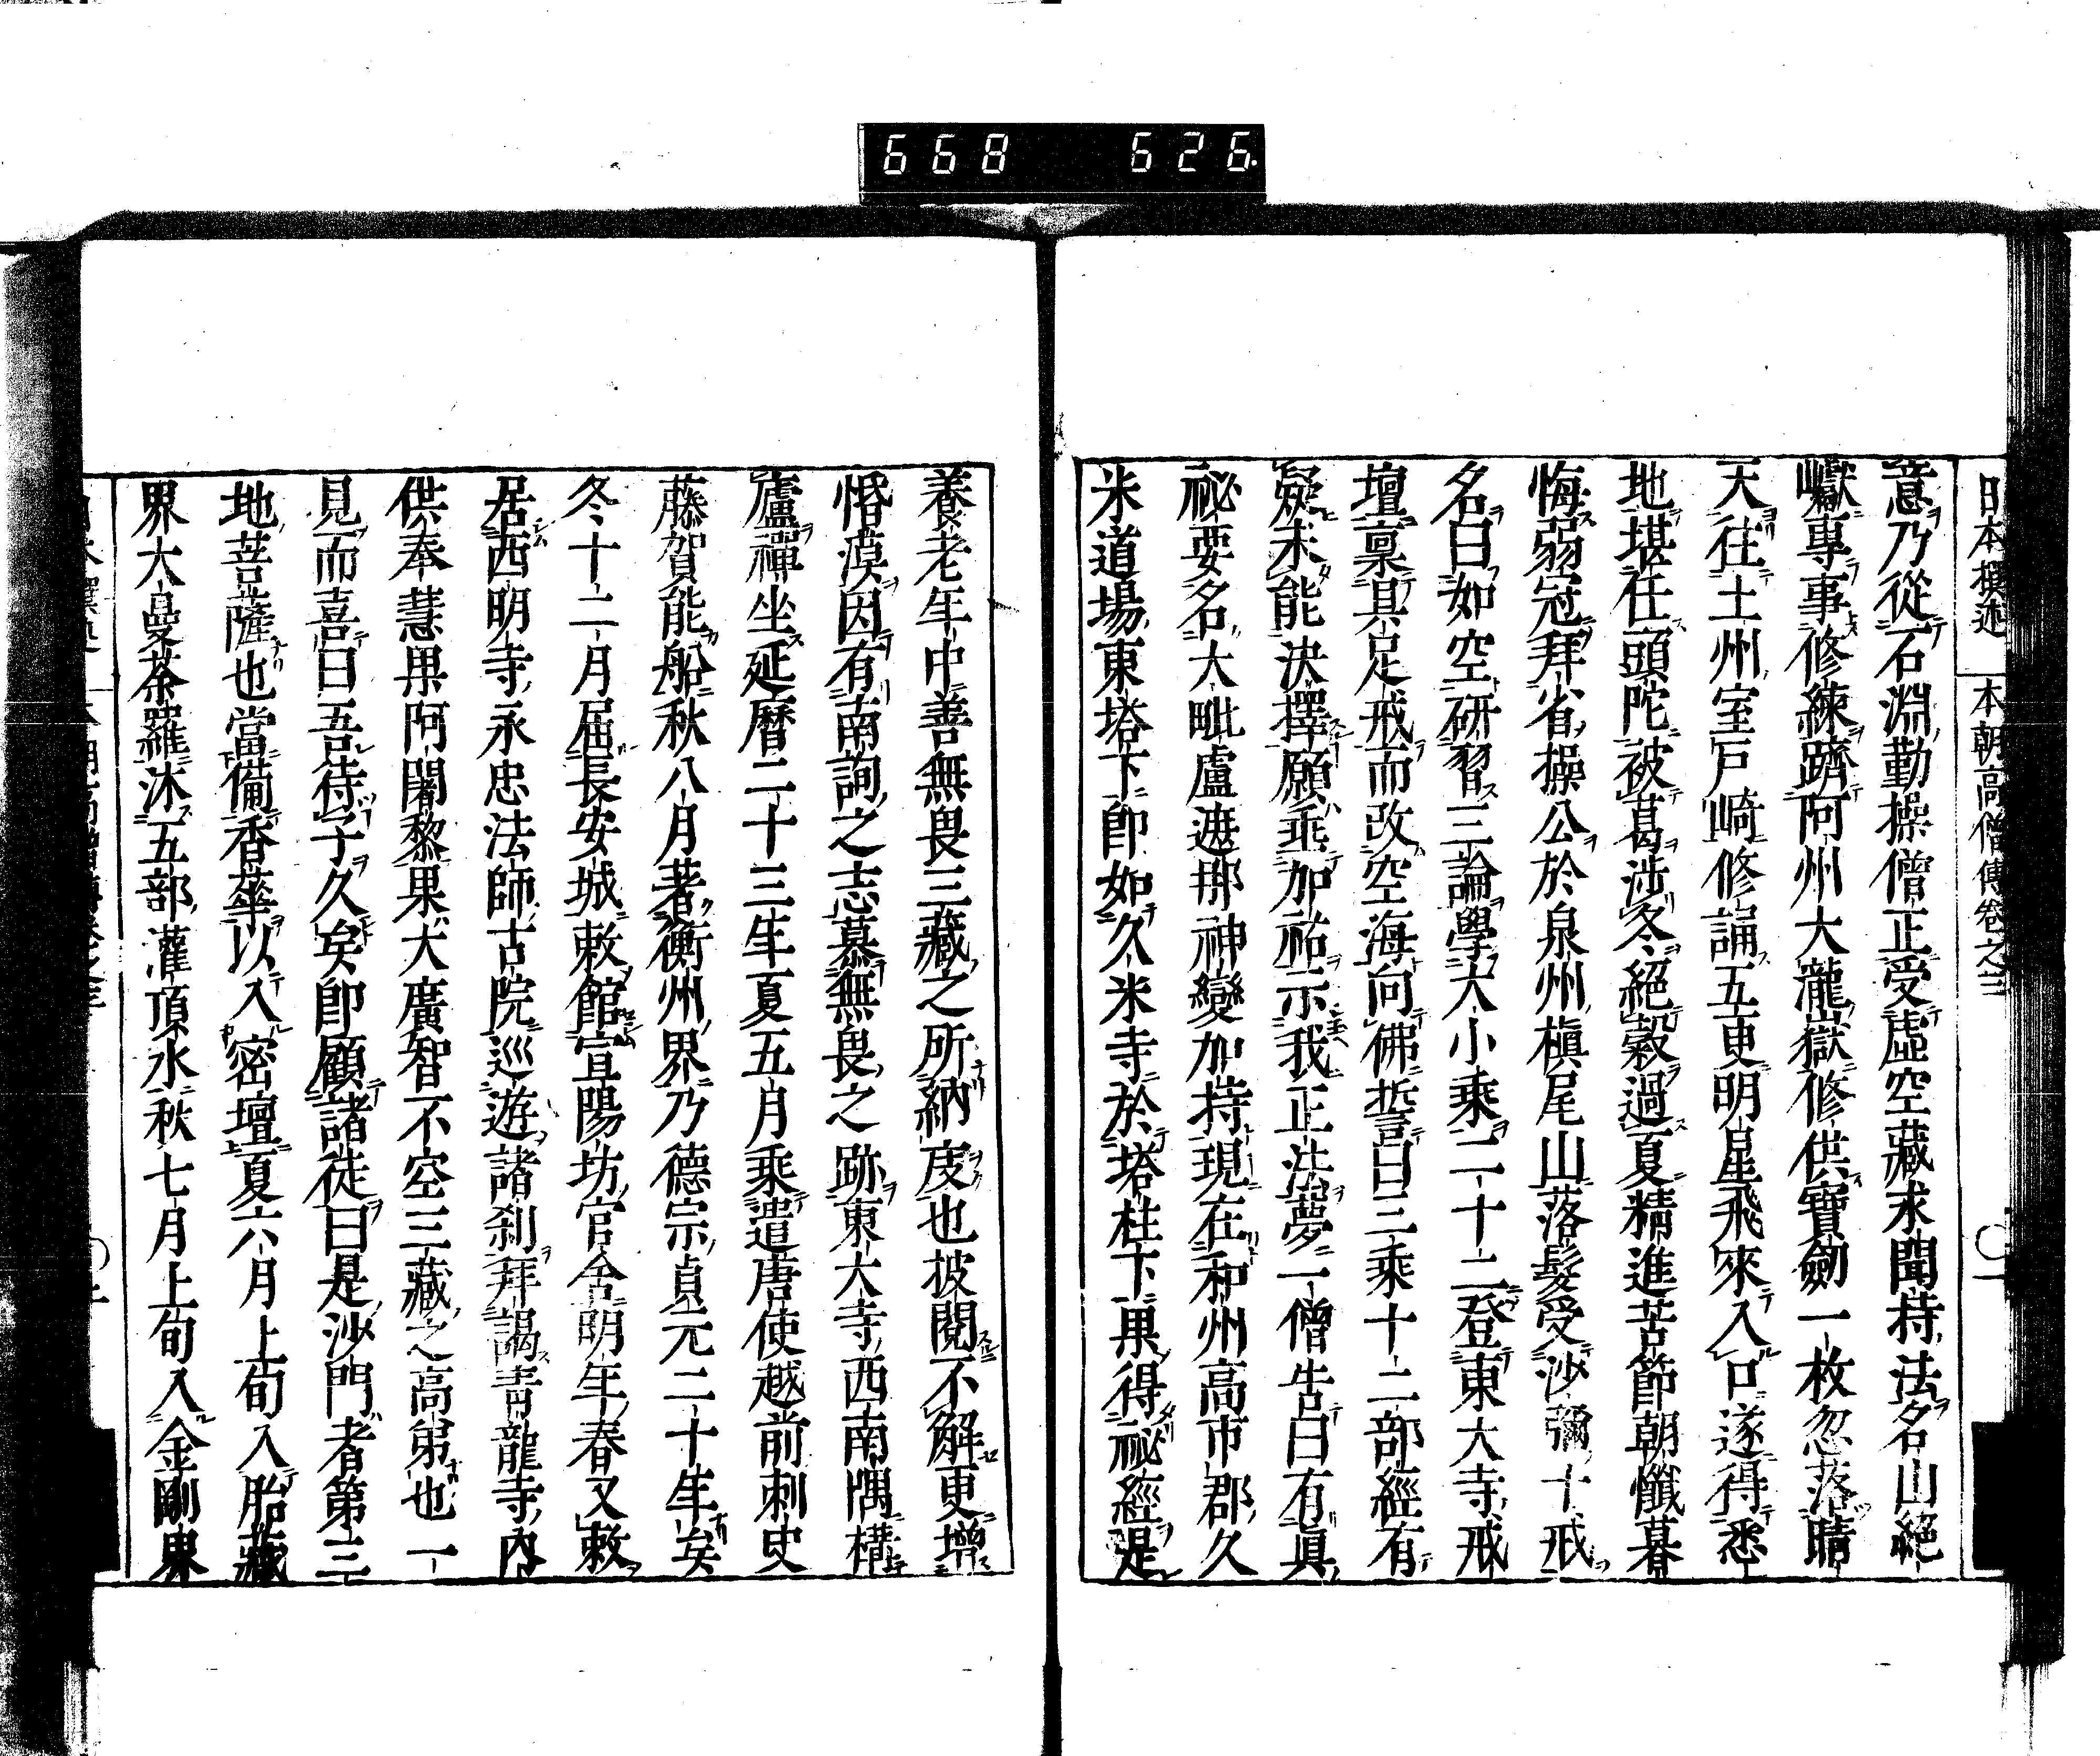 668 626
日本撰述 本朝高僧傳卷之三
意乃從石淵勤操僧正受虛空藏求聞持法名山絕
巘專事修練躋阿州大瀧嶽修供寶劒一枚忽落晴
天往土州室戸崎修誦五更明星飛來入口遂得悉
地堪任頭陀被葛涉冬絕穀過夏精進苦節朝懺暮
悔弱冠拜省操公於泉州槇尾山落髮受沙彌十戒
名曰如空研習三論學大小乘二十二登東大寺戒
壇稟具足戒而改空海向佛誓曰三乘十二部經有
疑未能決擇願乖加祐示我正法夢一僧告曰有眞
祕要名大毗盧遮那神變加持現在和州高市郡久
米道場東塔下卽如久米寺於塔柱下果得祕經是
養老年中善無畏三藏之所納度也披閱不解更增
惛漠因有南詢之志慕無畏之跡東大寺西南隅構
廬禪坐延曆二十三年夏五月乘遣唐使越前刺史
藤賀能船秋八月著衡州界乃德宗貞元二十年矣
冬十二月屆長安城敕館宣陽坊官舍明年春又敕
居西明寺永忠法師古院巡遊諸刹拜謁青龍寺內
供奉慧果阿闍黎果大廣智不空三藏之高弟也一
見而喜曰吾待子久矣卽顧諸徒曰是沙門者第三
地菩薩也當備香華以入密壇夏六月上旬入胎藏
界大曼茶羅沐五部灌頂水秋七月上旬入金剛界